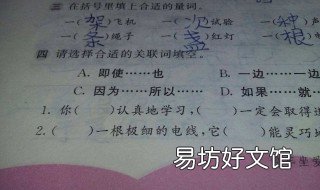 三 在括号里填上合适的量词。
一(架)飞机 一(次)试验 一(种)声
一(条)绳子 一(盏)红灯 一(根)电
四 请选择合适的关联词填空。
A. 即使……也 B. 一边……一边
C. 因为……所以…… D. 如果……就……
1. 你( )认真地学习,( )一定会取得进
2. ( )一根极细的电线,它( )能灵巧地
易坊好文馆